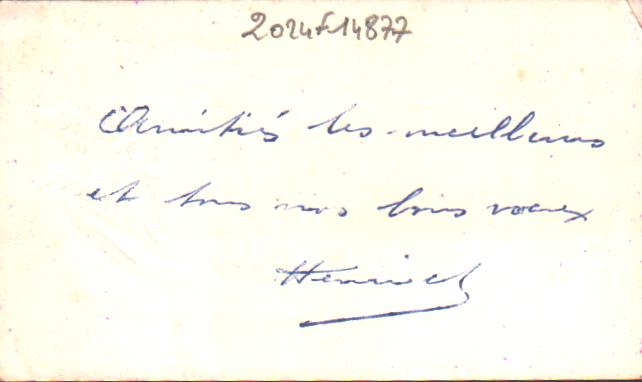 2024F14877
Amitiés les meilleures
et tous nos bons vœux